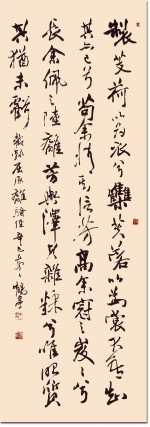 製芰荷以為衣兮雧芙蓉以為裳不吾知
其亦已兮苟余情其信芳高余冠之岌岌兮
長余佩之陸離芳與澤其雜糅兮唯昭質
其猶未虧 屈原離騷經辛巳